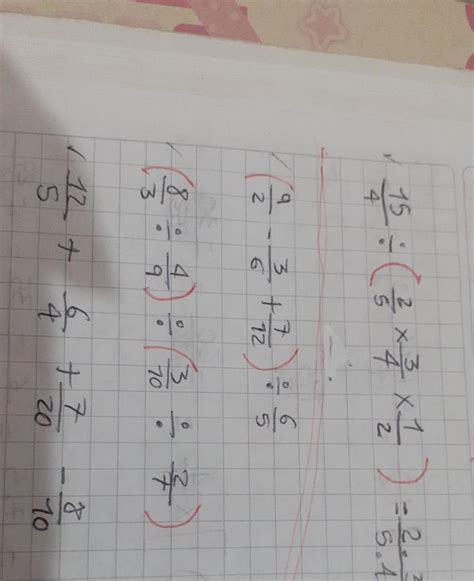 15/4 ÷ (2/5 × 3/4 × 1/2) = 2.3/5.4
(9/2 - 3/6 + 7/12) ÷ 6/5
(8/3 ÷ 4/9) ÷ (3/10 ÷ 2/7)
12/5 + 6/4 + 7/20 - 8/10